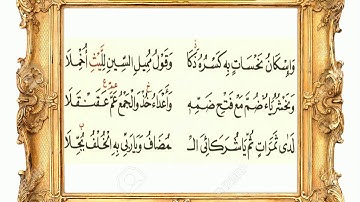 وَإِسْكَانُ نَحْسَاتٍ بِهِ كَسْرُهُ ذَكَا وَقَوْلُ مُمِيلِ السِّينِ لِلَّيْثِ أُخْمِلَا
وَنَحْشُرُ يَاءٌ ضُمَّ مَعْ فَتْحِ ضَمِّهِ وَأَعْدَاءُ خُذْ وَالْجَمْعُ عَمَّ عَقَنْقَلَا
لَدَى ثَمَرَاتٍ ثُمَّ يَا شُرَكَائِيَ الْـ مُضَافُ وَيَا رَبِّي بِهِ الْخُلْفُ بُجِّلَا